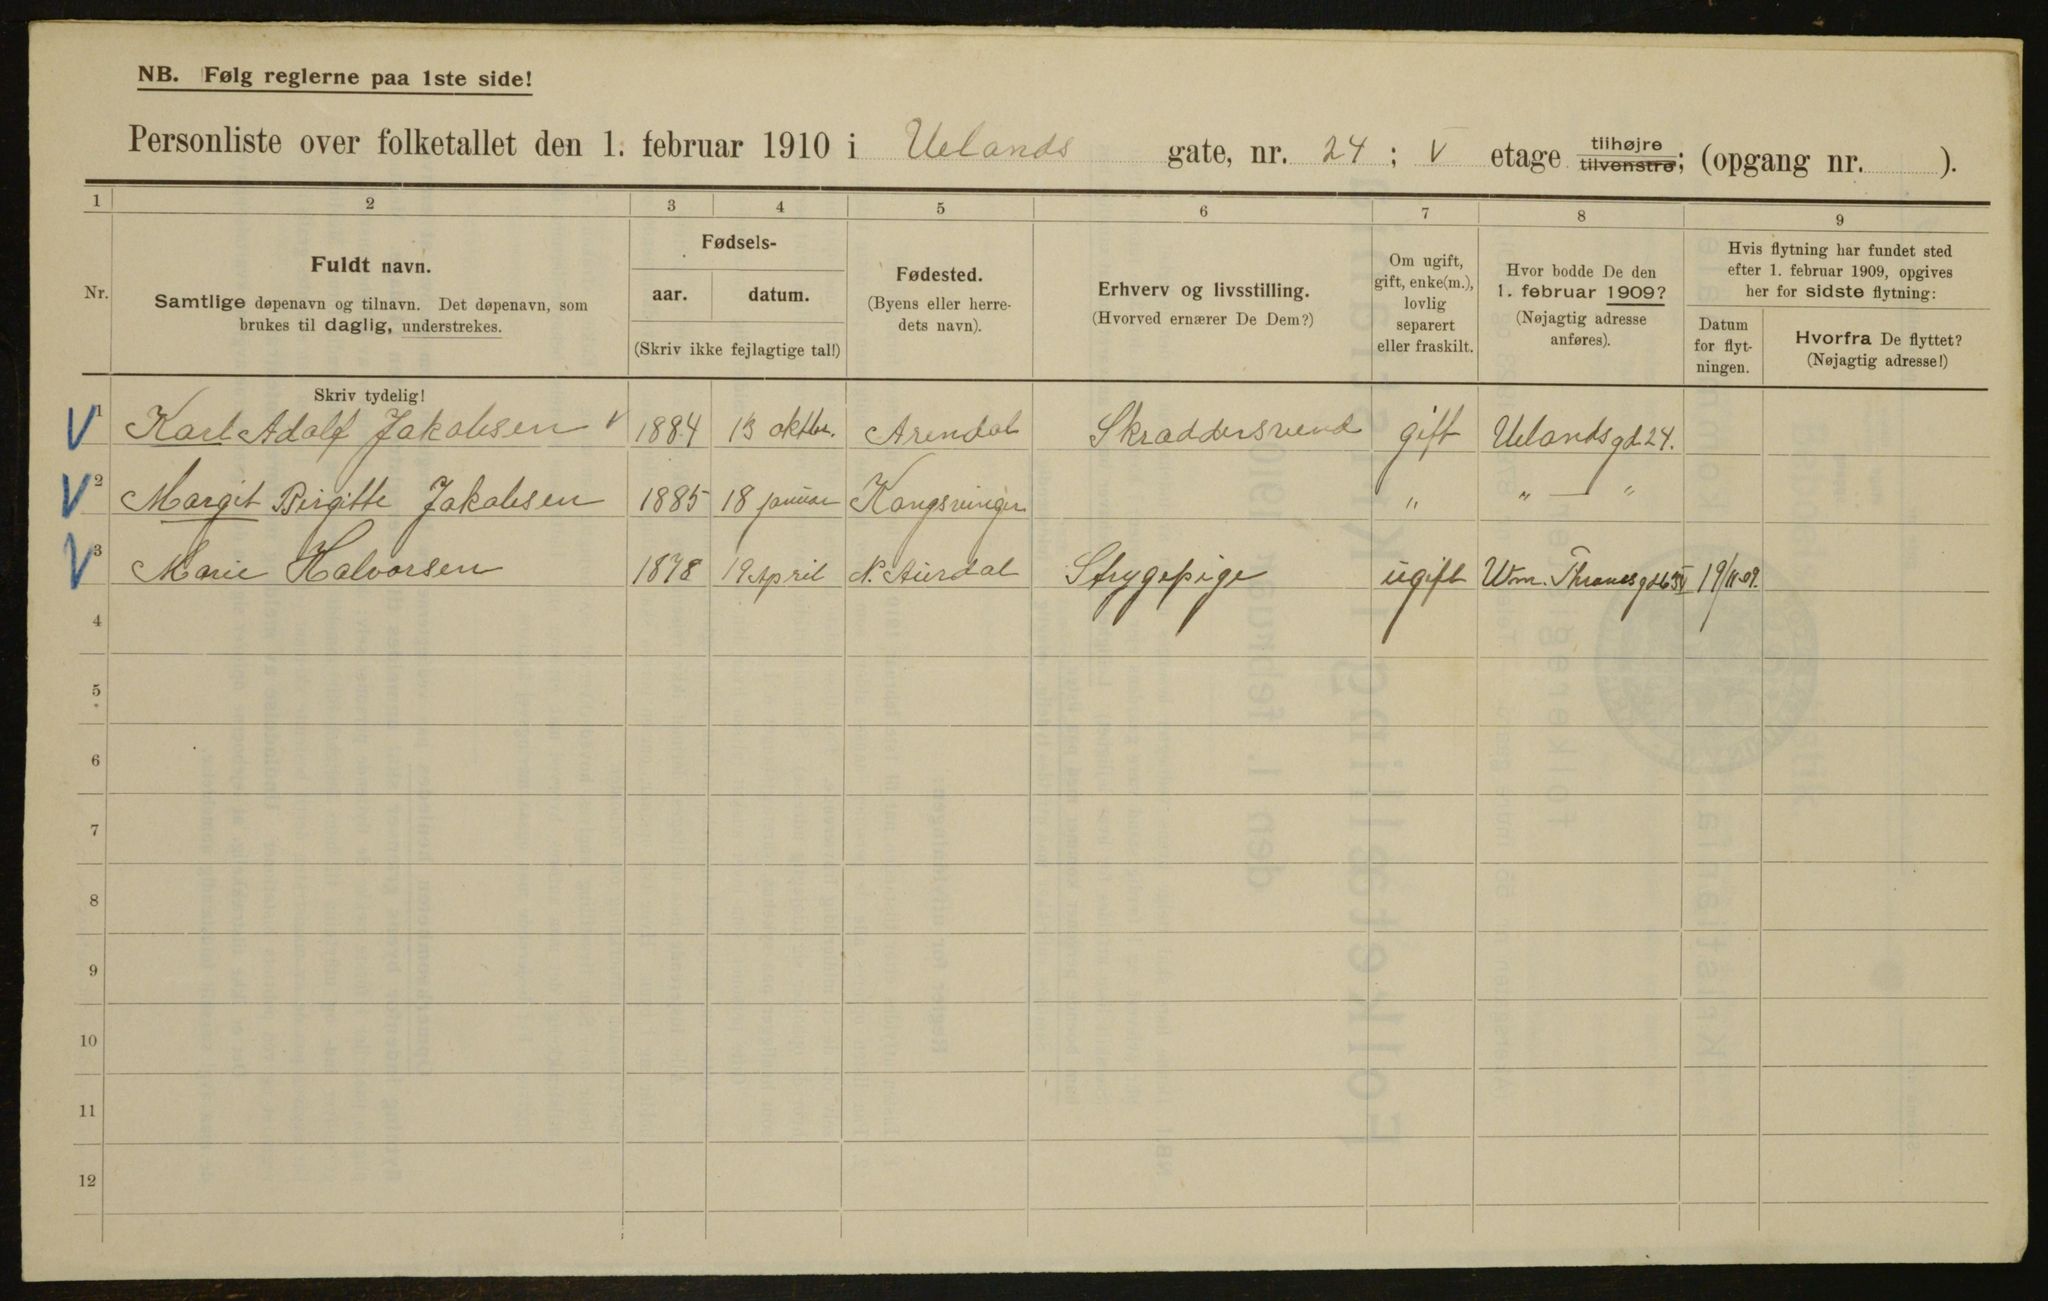 NB. Følg reglerne paa 1ste side!
Personliste over folketallet den 1. februar 1910 i Uelands gate, nr. 24 ; V etage tilhøjre tilvenstre; (opgang nr. ).
1 2 3 4 5 6 7 8 9
Nr.
Fuldt navn.
Samtlige døpenavn og tilnavn. Det døpenavn, som
brukes til daglig, understrekes.
Skriv tydelig!
Fødsels-
aar. datum.
(Skriv ikke fejlagtige tal!)
Fødested.
(Byens eller herre-
dets navn).
Erhverv og livsstilling.
(Hvorved ernærer De Dem?)
Om ugift,
gift, enke(m.),
lovlig
separert
eller fraskilt.
Hvor bodde De den
1. februar 1909?
(Nøjagtig adresse
anføres).
Hvis flytning har fundet sted
efter 1. februar 1909, opgives
her for sidste flytning:
Datum
for flyt-
ningen.
Hvorfra De flyttet?
(Nøjagtig adresse!)
V 1 Karl Adolf Jakobsen V 1884 13 oktbr. Arendal Skræddersvend gift Uelandsgd 24.
V 2 Margit Birgitte Jakobsen 1885 18 januar Kongsvinger " " — "
V 3 Marie Halvorsen 1878 19 April N. Aurdal Strygepige ugift Wm. Thranesgd 19/11 09.
4
5
6
7
8
9
10
11
12